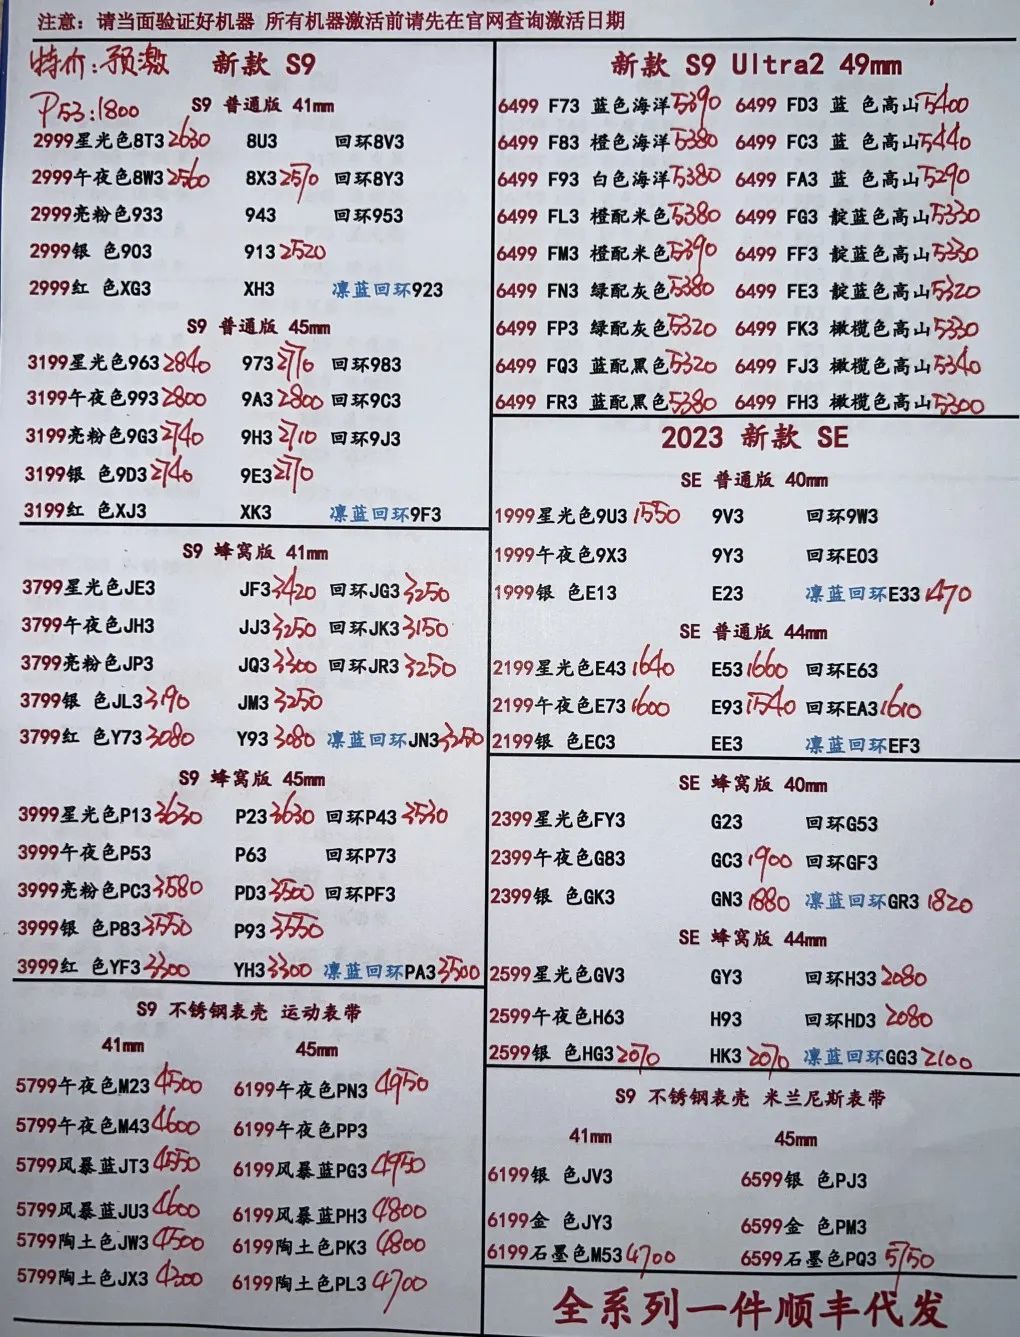 注意：请当面验证好机器 所有机器激活前请先在官网查询激活日期
特价：预激
新款 S9
P53：1800
S9 普通版 41mm
2999星光色8T3 2630 8U3 回环8V3
2999午夜色8W3 2560 8X3 2570 回环8Y3
2999亮粉色933 943 回环953
2999银 色903 913 2520
2999红 色XG3 XH3 凛蓝回环923
S9 普通版 45mm
3199星光色963 2840 973 2710 回环983
3199午夜色993 2800 9A3 2800 回环9C3
3199亮粉色9G3 2740 9H3 2710 回环9J3
3199银 色9D3 2740 9E3 2770
3199红 色XJ3 XK3 凛蓝回环9F3
S9 蜂窝版 41mm
3799星光色JE3 JF3 3420 回环JG3 3250
3799午夜色JH3 JJ3 3250 回环JK3 3150
3799亮粉色JP3 JQ3 3300 回环JR3 3250
3799银 色JL3 3190 JM3 3250
3799红 色Y73 3080 Y93 3080 凛蓝回环JN3 3250
S9 蜂窝版 45mm
3999星光色P13 3630 P23 3630 回环P43 3530
3999午夜色P53 P63 回环P73
3999亮粉色PC3 3580 PD3 3500 回环PF3
3999银 色P83 3550 P93 3550
3999红 色YF3 3300 YH3 3300 凛蓝回环PA3 3500
S9 不锈钢表壳 运动表带
41mm 45mm
5799午夜色M23 4500 6199午夜色PN3 4950
5799午夜色M43 4600 6199午夜色PP3
5799风暴蓝JT3 4550 6199风暴蓝PG3 4950
5799风暴蓝JU3 4600 6199风暴蓝PH3 4800
5799陶土色JW3 4500 6199陶土色PK3 4800
5799陶土色JX3 4200 6199陶土色PL3 4700
新款 S9 Ultra2 49mm
6499 F73 蓝色海洋5390 6499 FD3 蓝 色高山5400
6499 F83 橙色海洋5380 6499 FC3 蓝 色高山5440
6499 F93 白色海洋5380 6499 FA3 蓝 色高山5290
6499 FL3 橙配米色5380 6499 FG3 靛蓝色高山5330
6499 FM3 橙配米色5390 6499 FF3 靛蓝色高山5330
6499 FN3 绿配灰色5380 6499 FE3 靛蓝色高山5320
6499 FP3 绿配灰色5320 6499 FK3 橄榄色高山5330
6499 FQ3 蓝配黑色5320 6499 FJ3 橄榄色高山5340
6499 FR3 蓝配黑色5380 6499 FH3 橄榄色高山5300
2023 新款 SE
SE 普通版 40mm
1999星光色9U3 1550 9V3 回环9W3
1999午夜色9X3 9Y3 回环E03
1999银 色E13 E23 凛蓝回环E33 1470
SE 普通版 44mm
2199星光色E43 1640 E53 1660 回环E63
2199午夜色E73 1600 E93 1540 回环EA3 1610
2199银 色EC3 EE3 凛蓝回环EF3
SE 蜂窝版 40mm
2399星光色FY3 G23 回环G53
2399午夜色G83 GC3 1900 回环GF3
2399银 色GK3 GN3 1880 凛蓝回环GR3 1820
SE 蜂窝版 44mm
2599星光色GV3 GY3 回环H33 2080
2599午夜色H63 H93 回环HD3 2080
2599银 色HG3 2070 HK3 2070 凛蓝回环GG3 2100
S9 不锈钢表壳 米兰尼斯表带
41mm 45mm
6199银 色JV3 6599银 色PJ3
6199金 色JY3 6599金 色PM3
6199石墨色M53 4700 6599石墨色PQ3 5750
全系列一件顺丰代发